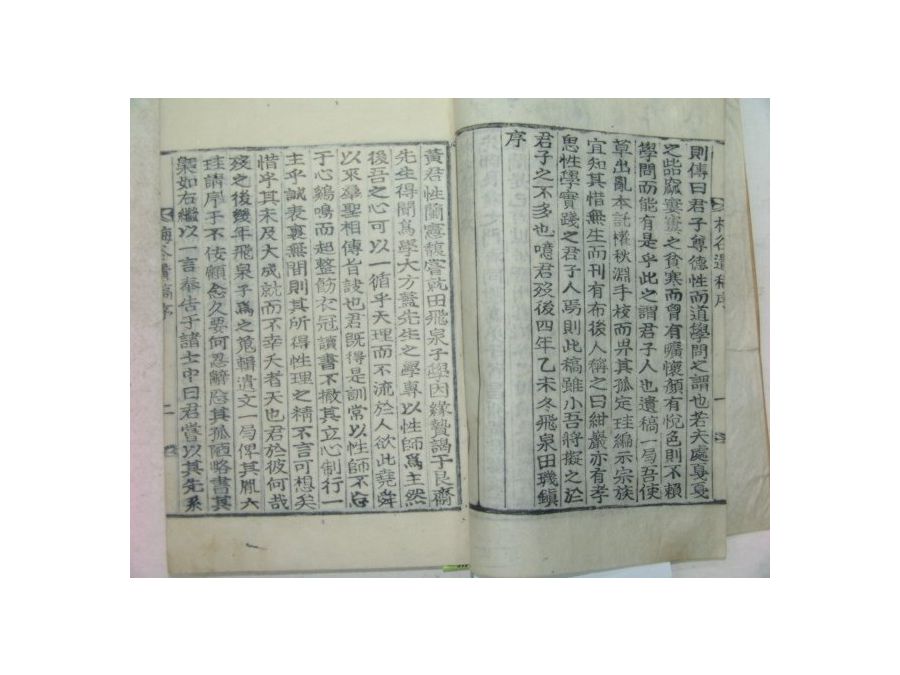 梅谷遺稿序 一
則傳曰君子尊德性而道學問之謂也若夫處戛戛
之啙窳寠寠之貧寒而胷有曠懷顏有悅色則不賴
學問而能有是乎此之謂君子人也遺稿一局吾使
草出亂本託權秋淵手校而畀其孤定珪編示宗族
宜知其惜無生而刊有布後人稱之曰紺巖亦有孝
思性學實踐之君子人焉則此稿雖小吾將擬之於
君子之不多也噫君歿後四年乙未冬飛泉田璣鎮
序
黃君性蘭憲馥嘗就田飛泉子學因緣贄謁于艮齋
先生得聞爲學大方蓋先生之學專以性師爲主然
後吾之心可以一循乎天理而不流於人欲此堯舜
以來羣聖相傳旨訣也君既得是訓常以性師不忘
于心鷄鳴而起整飭衣冠讀書不撤其立心制行一
主乎誠表裏無間則其所得性理之精不言可想矣
惜乎其未及大成就而不幸夭者天也君於彼何哉
歿之後幾年飛泉子爲之蒐輯遺文一局俾其胤大
珪請序于不佞顧念久要何忍辭其孤陋略書其
槩如右繼以一言奉告于諸士中曰君嘗以其先系
梅谷遺稿序 二